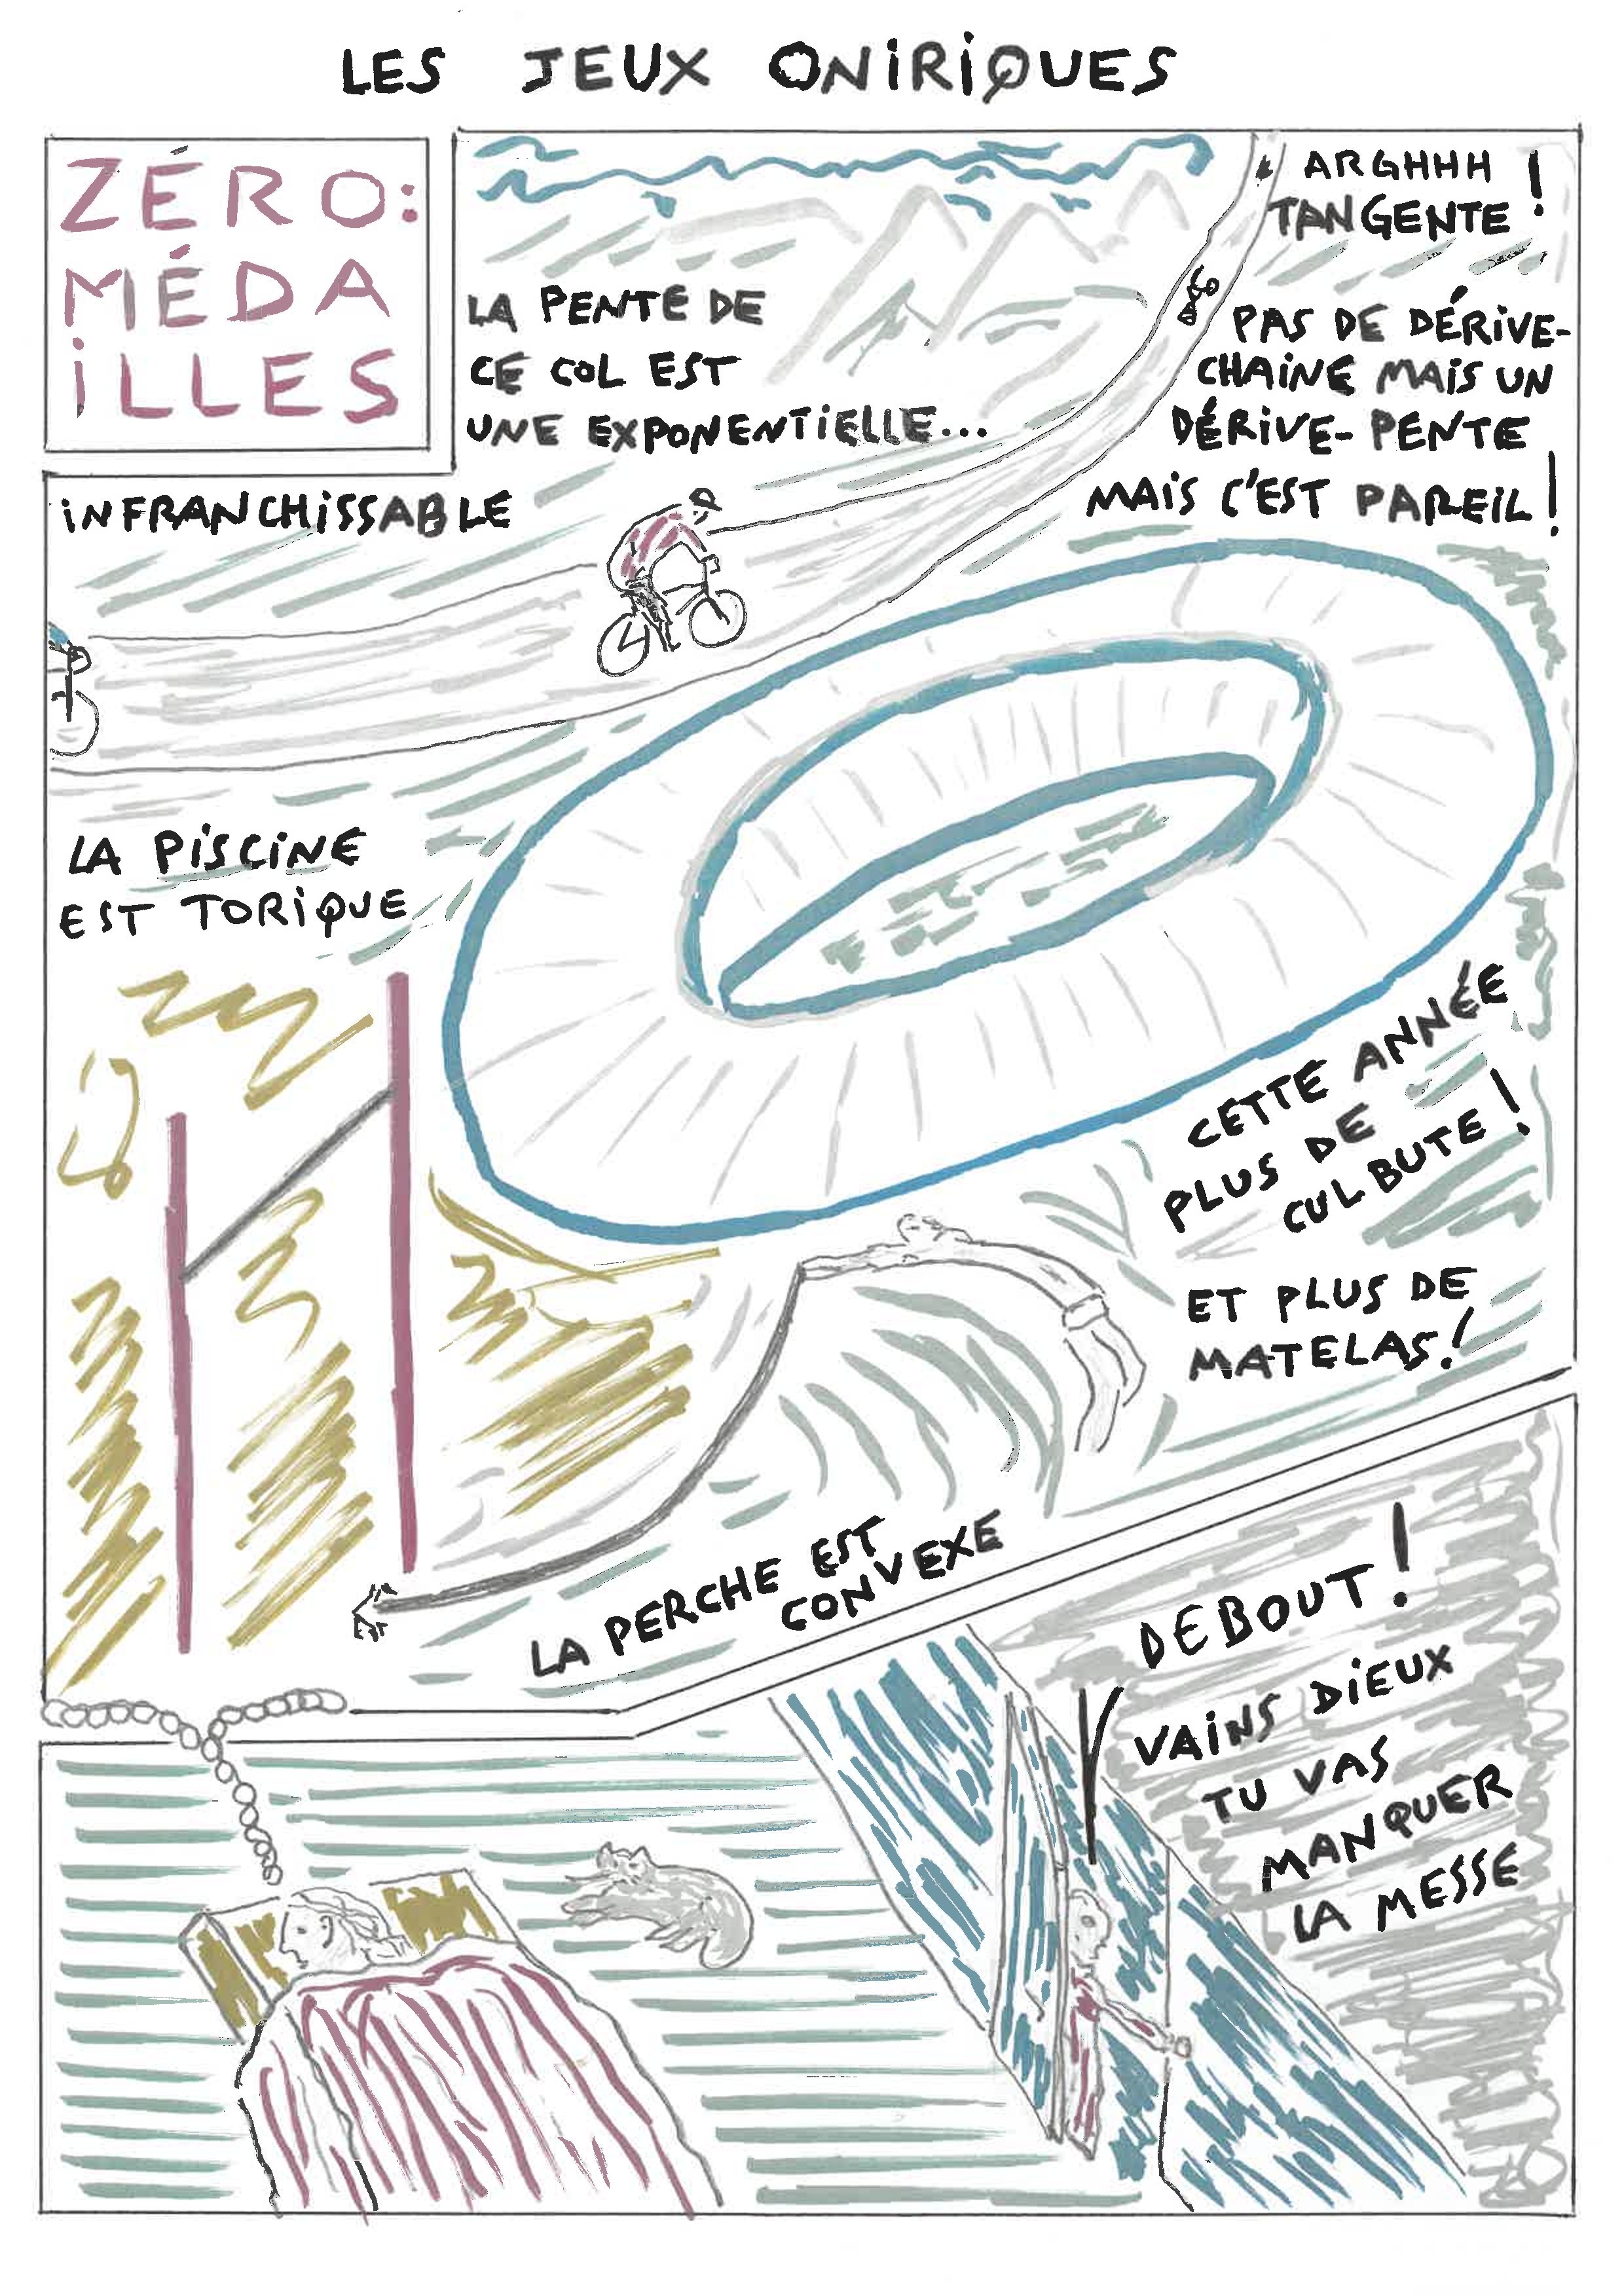 LES JEUX ONIRIQUES
ZÉRO:
MÉDA
ILLES
LA PENTE DE
CE COL EST
UNE EXPONENTIELLE...
INFRANCHISSABLE
ARGHHH !
TANGENTE !
PAS DE DÉRIVE-
CHAINE MAIS UN
DÉRIVE-PENTE
MAIS C'EST PAREIL !
LA PISCINE
EST TORIQUE
CETTE ANNÉE
PLUS DE
CULBUTE !
ET PLUS DE
MATELAS !
LA PERCHE EST
CONVEXE
DEBOUT !
VAINS DIEUX
TU VAS
MANQUER
LA MESSE